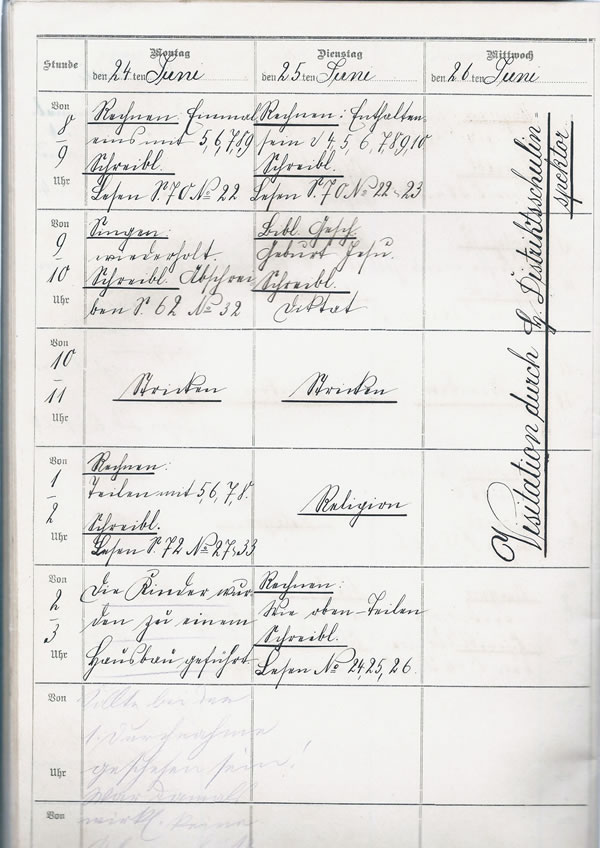 Stunde
Montag
den 24.ten Juni
Dienstag
den 25.ten Juni
Mittwoch
den 26.ten Juni
Von
8
9
Uhr
Rechnen. Einmal
eins mit 5,6,7,8,9
Schreibl.
Lesen S. 70 No 22
Rechnen: Enthalten
sein v 4, 5, 6, 7 8 9, 10
Schreibl.
Lesen S. 70 No 22 u. 23
Von
9
10
Uhr
Singen:
wiederholt.
Schreibl. Abschrei
ben S. 62 No 32
Bibl. Gesch.
Geburt Jesu.
Schreibl.
Diktat
Von
10
11
Uhr
Stricken
Stricken
Von
1
2
Uhr
Rechnen:
Teilen mit 5,6,7,8.
Schreibl.
Lesen S. 72 No 27 u. 33
Religion
Von
2
3
Uhr
Die Kinder wur
den zu einem
Hausbau geführt.
Rechnen:
Wie oben – Teilen
Schreibl.
Lesen No 24, 25, 26.
Visitation durch H. Distriktsschulin
spektor
Von
Uhr
Sollte bei der
1. Durchnahme
geschehen sein!
War damals
wirkl. keine
Von